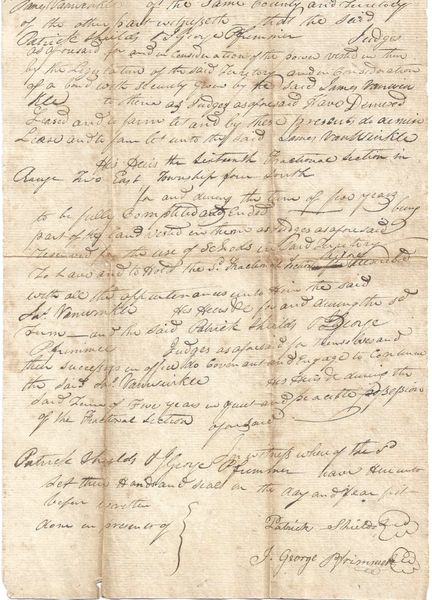 James Vanwinkle of the Same County and Territory
of the other part witnesseth that the Said
Patrick Shields & J. George Pfrimmer Judges
as aforesaid for and in Consideration of the power vested in them
by the Legislature of the said Territory and in Consideration
of a Bond with Security given by the Said James Vanwin
kle to them as Judges aforesaid have Demised
Leased and to farm let and by these presents do demise
Lease and to farm let unto the said James VanWinkle
His Heirs the Sixteenth Fractional Section in
Range Two East Township four South
for and during the term of five years
to be fully Compleated and Ended being
part of the land vested in them as Judges as aforesaid
reserved for the use of Schools in Said Territory
To have and to Hold the Sd. Fractional Section described
with all the appurtenances unto Him the said
Jas. Vanwinkle His Heirs &c for and during the sd
Term — and the said Patrick Shields & J George
Pfrimmer Judges as aforesaid for themselves and
their successors in office do Covenant and Engage to Continue
the said Js. Vanwinkle His Heirs &c during the
said Term of Five years in quiet and peaceable possession
of the Fractional Section aforesaid
In witness where of the Sd
Patrick Shields & J. George Pfrimmer have Hereunto
Set their Hands and seals on the day and year first
before written
done in presence of
Patrick Shields
J. George Pfrimmer